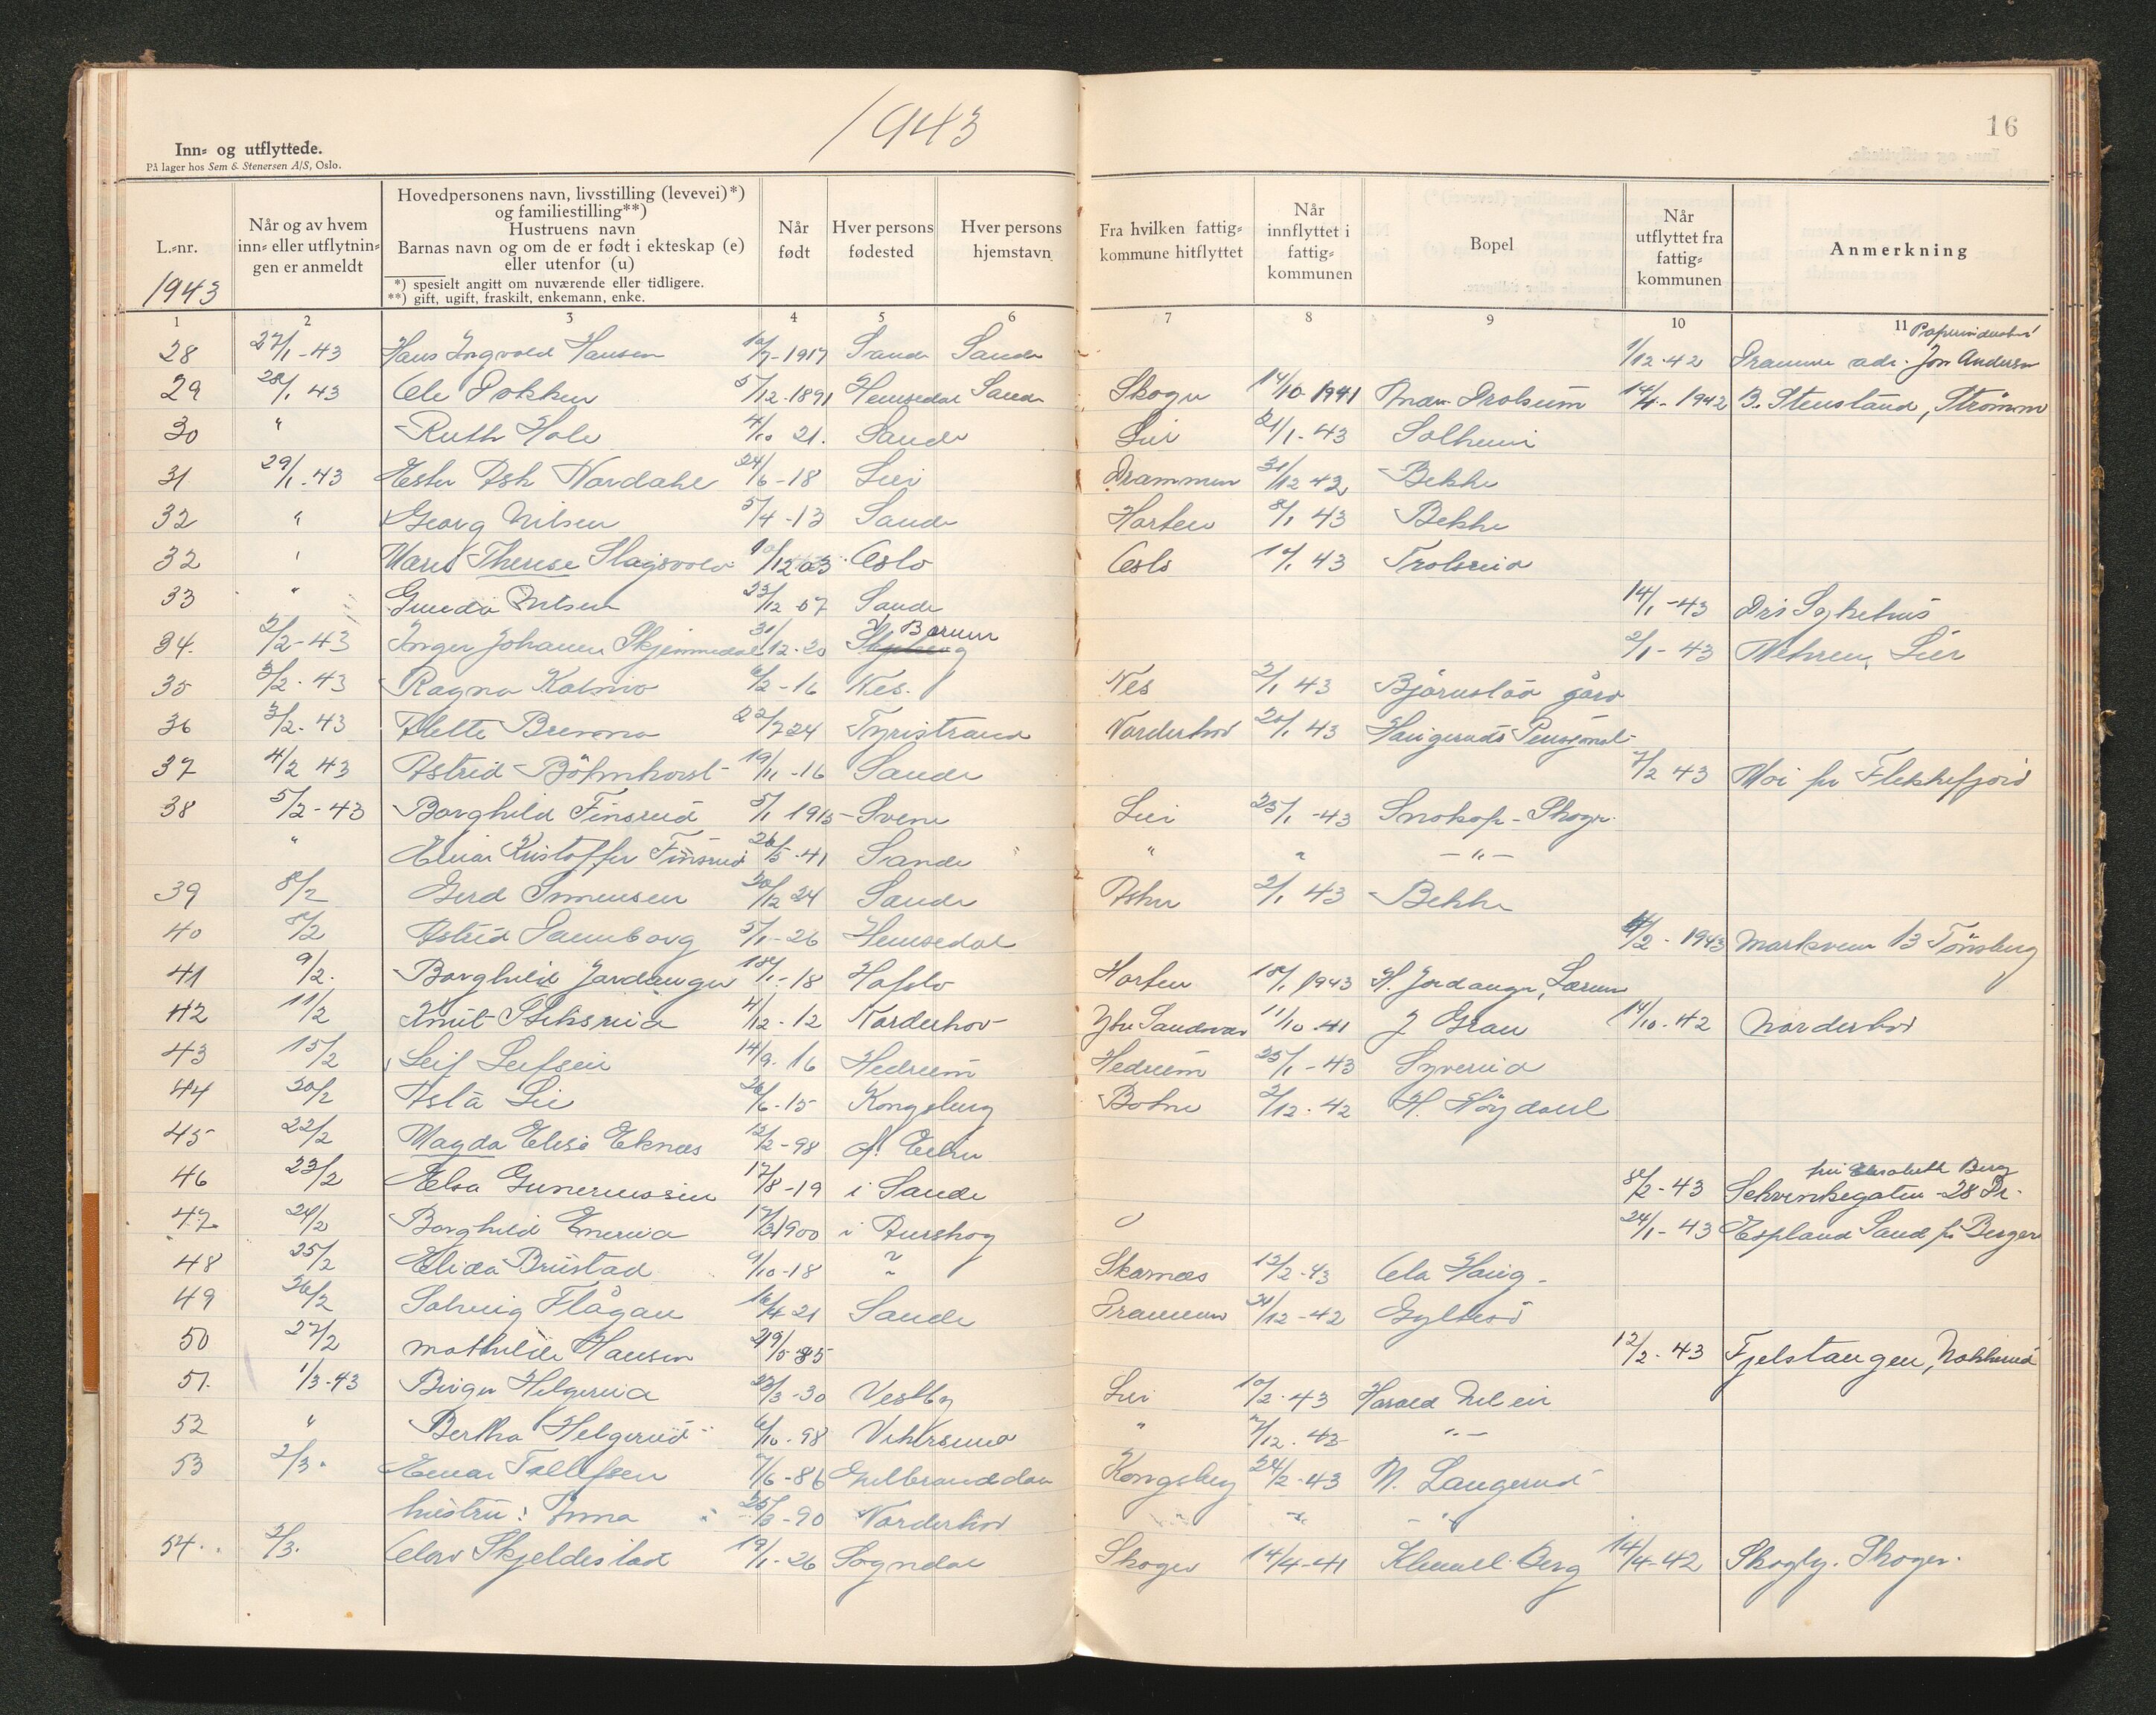 1943
16
Inn- og utflyttede.
På lager hos Sem & Stenersen A/S, Oslo.
L.-nr. 1943
Når og av hvem inn- eller utflytnin- gen er anmeldt
Hovedpersonens navn, livsstilling (levevei)*)
og familiestilling**)
Hustruens navn
Barnas navn og om de er født i ekteskap (e)
eller utenfor (u)
*) spesielt angitt om nuværende eller tidligere.
**) gift, ugift, fraskilt, enkemann, enke.
Når født
Hver persons fødested
Hver persons hjemstavn
Fra hvilken fattig- kommune hitflyttet
Når innflyttet i fattig- kommunen
Bopel
Når utflyttet fra fattig- kommunen
Anmerkning
1 2 3 4 5 6 7 8 9 10 11
28 27/1-43 Hans Ingvald Hansen 1917 Sande Sande 1/12-42 Drammen adr. Jon Andersen
29 28/1 43 Ole Dokken 5/12-1891 Hemsedal Sande Skoger 14/10 1941 14/4-1942 B. Stensland, Strømm
30 " Ruth Hole 4/10 21. Sande Lier 21/1-43 Solheim
31 29/1-43 Ester Ask Nordahl 24/6-18 Lier Drammen 31/12 42 Bekke
32 " Georg Nilsen 5/4-13 Sande Horten 8/1 43 Bekke
32 " Therese Slagsvold 03 Oslo Oslo 43
33 " Gunda Nilsen 23/12-07 Sande 14/1-43 Drs Sykehus
34. 2/2-43 Inger Johanne Skjennedal 31/12-20 V. Bærum 2/1-43 Lier
35 3/2-43 Ragna 6/2-16 Nes. Nes 2/1 43 Bjørnstad gård
36 3/2-43 Alette 24 Tyristrand Norderhov 20/1 43 Haugeruds Pensjonat
37 4/2 43 Astrid Böhmhorst 19/11-16 Sande 7/2 43 Moi pr Flekkefjord
38 5/2-43 Borghild Finsrud 5/1 1915 Svene Lier 25/1-43 Snokop-Skoger
" Einar Kristoffer Finsrud 26/5-41 Sande " " -"-
39 8/2 Gerd Simensen 20/12 24 Sande Asker 2/1 43 Bekke
40 8/2 Astrid 5/1-26 Hemsedal /2-1943 Markveien 13 Tönsberg
41 9/2. Borghild Jordanger 18/1-18 Hafslo Horten 18/1 1943 H. Jordanger,
42 11/2 Knut 4/12-12 Norderhov Ytre Sandsvær 11/10-41 J Grau 14/10-42 Norderhov
43 15/2 Leif Leifsen 14/9-16 Hedrum Hedrum 25/1-43 Syverud
44 20/2 Asta Lie 26/6-15 Kongsberg Botne 2/12-42 H. Høydahl
45 22/2 Magda Elise Eknæs 12/2-98 Ø. Eiker
46 23/2 Elsa 17/8-19 i Sande 8/2-43 frk Elisabeth Berg
Schwenkegaten 28 Dr.
47 24/2 Borghild Enerud 1900 i Aurskog 24/1-43 Espeland Sand pr Bergen
48 25/2 Elida Brustad 9/10-18 " Skarnæs 12/2-43 Ola Haug
49 26/2 Solveig Flågan 16/4 21 Sande Drammen /12-42
50 27/2 Mathilde Hansen 29/5-85 12/2-43 Fjelstangen,
51. 1/3-43 Birger Helgerud 23/3-30 Vestby Lier 10/2-43 Harald Nilsen
52 " Bertha Helgerud 6/10-98 Vikersund " "-
53 2/3. Einar Tollefsen 7/6-86 Gulbrandsdalen Kongsberg 24/2-43 N. Langerud
hustru: Anna -90 Norderhov " "
54. 2/3. Olav Skjeldestad 19/1-26 Sogndal Skoger 14/4-41 Klemmet Berg 14/4-42 Skogly. Skoger.